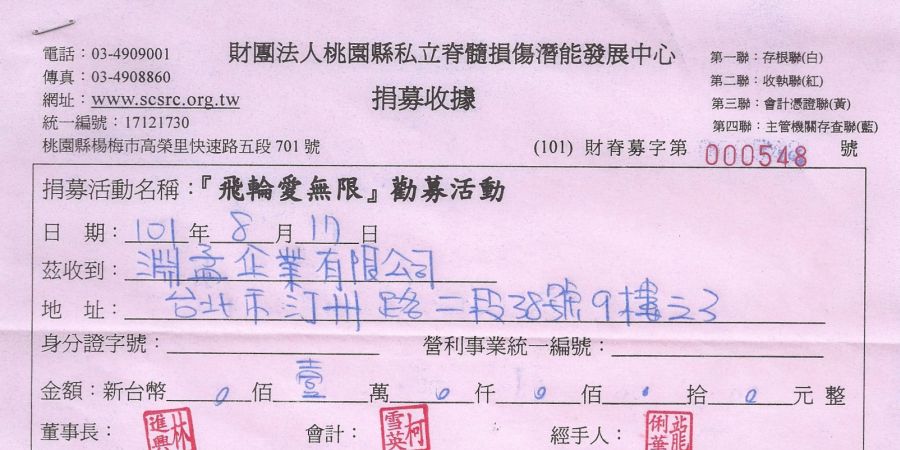 電話：03-4909001
傳真：03-4908860
網址：www.scsrc.org.tw
統一編號：17121730
桃園縣楊梅市高榮里快速路五段 701 號
財團法人桃園縣私立脊髓損傷潛能發展中心
捐募收據
第一聯：存根聯(白)
第二聯：收執聯(紅)
第三聯：會計憑證聯(黃)
第四聯：主管機關存查聯(藍)
(101) 財脊募字第 000548 號
捐募活動名稱：『飛輪愛無限』勸募活動
日 期：101年 8 月 17 日
茲收到：淵孟企業有限公司
地 址：台北市汀州路二段38號9樓之3
身分證字號： 營利事業統一編號：
金額：新台幣 0 佰 壹 萬 0 仟 0 佰 0 拾 0 元 整
董事長：林進興 會計：柯雪英 經手人：